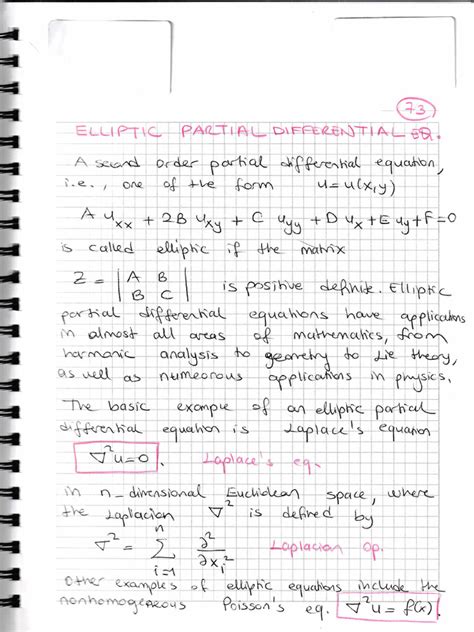 73
ELLIPTIC PARTIAL DIFFERENTIAL EQ.
A second order partial differential equation,
i.e., one of the form u=u(x,y)
A u_xx + 2B u_xy + C u_yy + D u_x + E u_y + F = 0
is called elliptic if the matrix
Z = | A B |
| B C | is positive definite. Elliptic
partial differential equations have applications
in almost all areas of mathematics, from
harmonic analysis to geometry to Lie theory,
as well as numeorous applications in physics.
The basic example of an elliptic partial
differential equation is Laplace's equation
∇²u=0. Laplace's eq.
in n-dimensional Euclidean space, where
the Laplacian ∇² is defined by
∇² = Σ_{i=1}^{n} ∂²/∂x_i² Laplacian Op.
Other examples of elliptic equations include the
nonhomogeneous Poisson's eq. ∇²u = f(x).